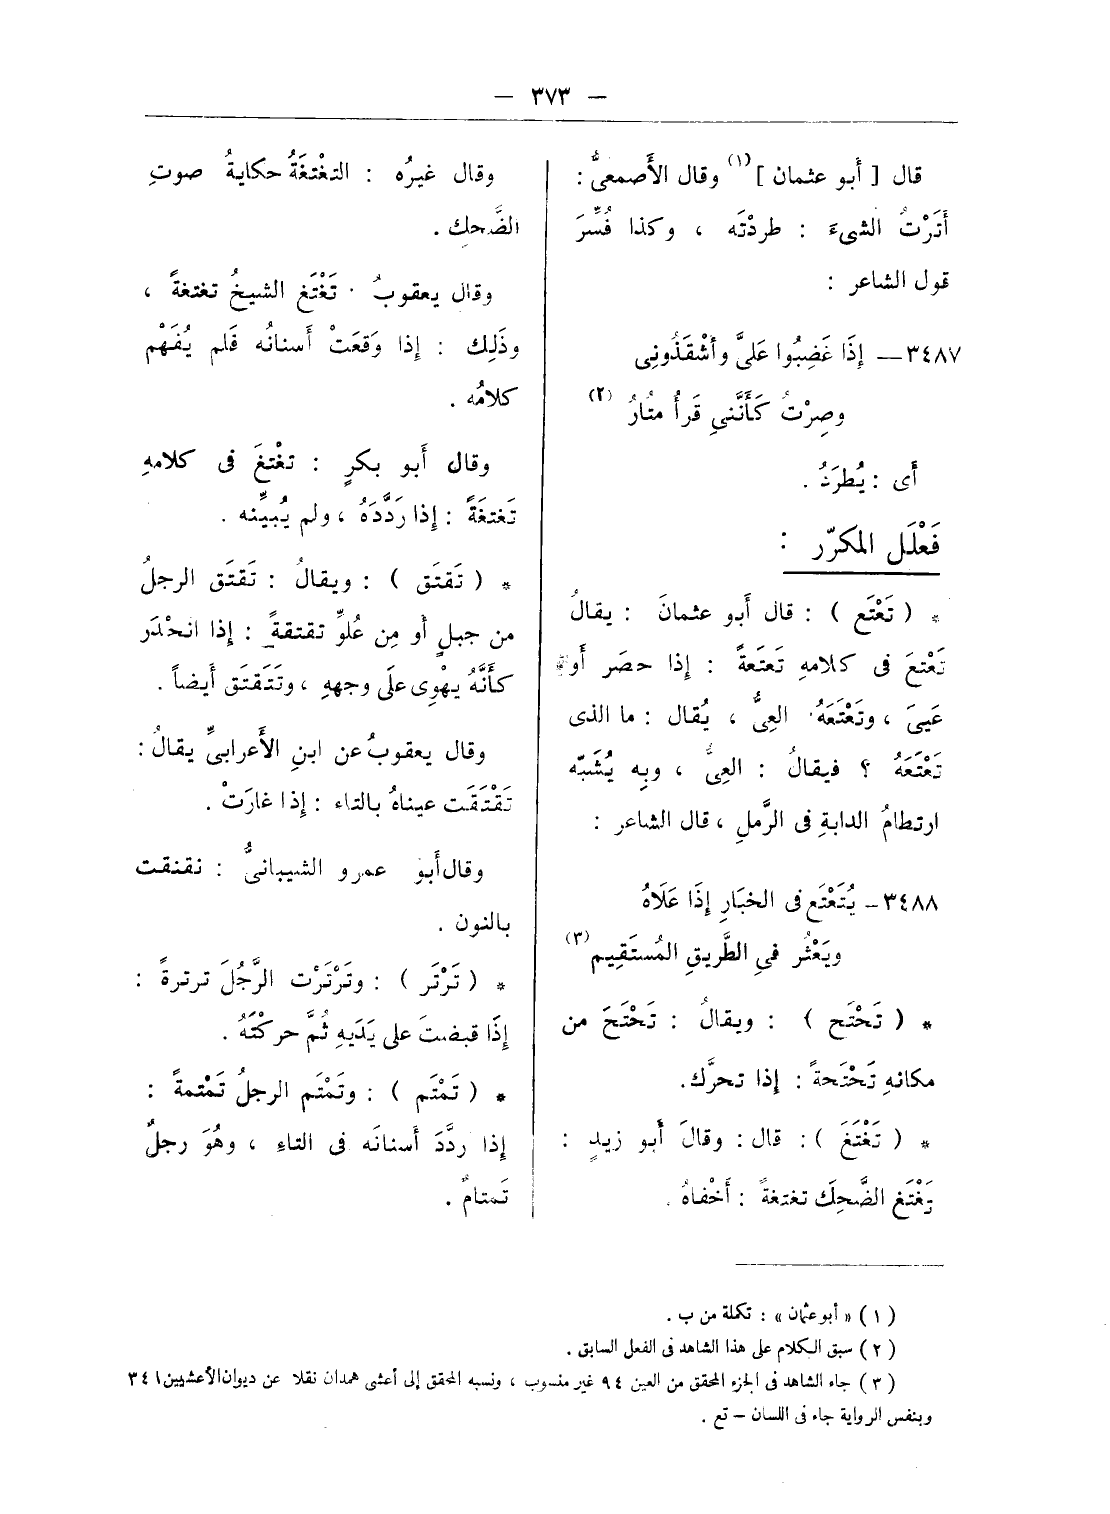 — ٣٧٣ —
قال [ أبو عثمان ] (١) وقال الأَصمعىُّ :
أَتَرْتُ الشىءَ : طردْتَه ، وكذا فُسِّرَ
قول الشاعر :
٣٤٨٧ — إِذَا غَضِبُوا عَلىَّ وأَشْقَذُونِى
وصِرْتُ كَأَنَّنىِ قَرأُ متُارُ (٢)
أَى : يُطرَدُ .
فَعْلَل المكرّر :
* ( تَعْتَع ) : قال أَبو عثمانَ : يقالُ
تَعْتعَ فى كلامهِ تَعتَعةً : إذا حصَر أَو
عَيىَ ، وتَعْتَعَهُ العِىُّ ، يُقال : ما الذى
تَعْتَعَهُ ؟ فيقالُ : العِىُّ ، وبِه يُشَبّه
ارتطامُ الدابةِ فى الرَّملِ ، قال الشاعر :
٣٤٨٨ – يُتَعْتَع فى الخبَارِ إِذَا عَلَاهُ
ويَعْثُر فىِ الطَّريقِ المُستَقِيم (٣)
* ( تَحْتَح ) : ويقالُ : تَحْتَحَ من
مكانهِ تَحْتَحةً : إذا تحرَّك.
* ( تَغْتَغَ ) : قال : وقالَ أَبو زيدٍ :
تَغْتَغ الضَّحِكَ تغتغةً : أَخْفاهُ .
وقال غيرُه : التغْتغَةُ حكايةُ صوتِ
الضَّحِك .
وقال يعقوبُ : تَغْتَغ الشيخُ تغتغةً ،
وذَلِك : إذا وَقَعَتْ أَسنانُه فَلم يُفَهْم
كلامُه .
وقال أَبو بكرٍ : تغْتغَ فى كلامهِ
تَغتغَةً : إِذا رَدَّدَهُ ، ولم يُبيِّنه .
* ( تَقتَق ) : ويقالُ : تَقتَق الرجلُ
من جبلٍ أَو مِن عُلوٍّ تقتقةً : إذا انحْدَر
كأَنَّهُ يهْوِى علَى وجههِ ، وتَتَقتَق أَيضاً .
وقال يعقوبُ عن ابنِ الأَعرابىِّ يقالُ :
تَقْتَقَت عيناهُ بالتاء : إِذا غارَتْ .
وقال أَبو عمرو الشيبانىُّ : نقنقت
بالنون .
* ( تَرْتَر ) : وتَرْتَرْت الرَّجُلَ ترترةً :
إِذَا قبضتَ على يَدَيهِ ثُمَّ حركْتَهُ .
* ( تَمْتَم ) : وتَمْتَم الرجلُ تَمْتمةً :
إذا ردَّدَ أَسنانَه فى التاءِ ، وهُوَ رجلٌ
تَمتامٌ .
( ١ ) « أبو عثمان » : تكملة من ب .
( ٢ ) سبق الكلام على هذا الشاهد فى الفعل السابق .
( ٣ ) جاء الشاهد فى الجزء المحقق من العين ٩٤ غير منسوب ، ونسبه المحقق إلى أعشى همدان نقلا عن ديوان الأعشيين ٣٤١
وبنفس الرواية جاء فى اللسان – تع .